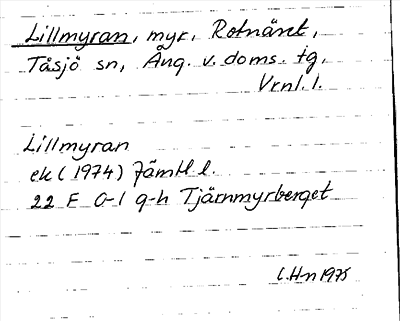 Lillmyran, myr, Rotnäset,
Tåsjö sn, Ång. v. doms. tg.
Vrnl. l.
Lillmyran
ek (1974) Jämtl l.
22 F 0-1 g-h Tjärnmyrberget
C.Hn 1975